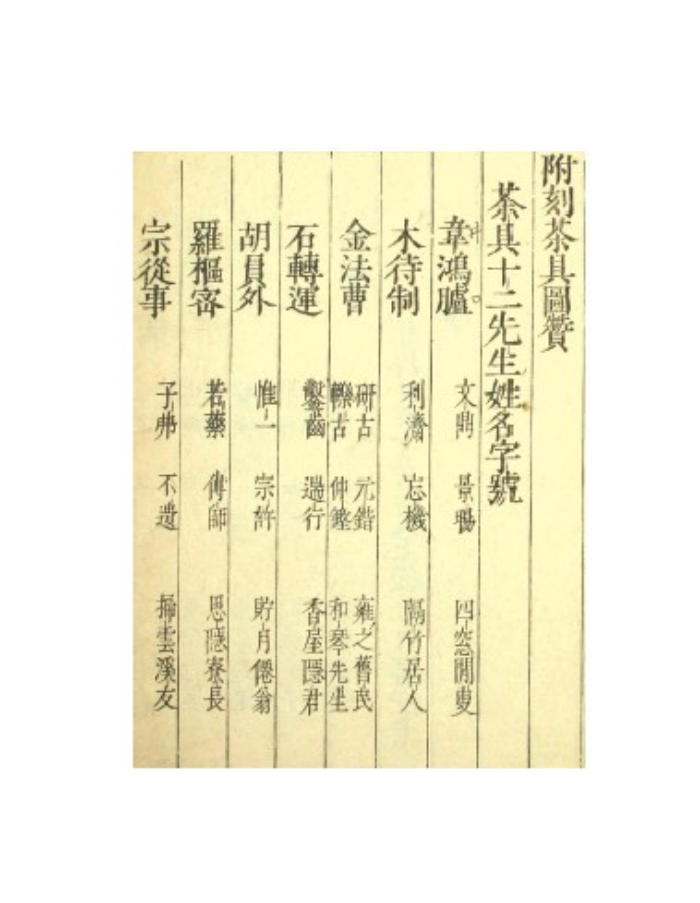 附刻茶具圖贊
茶具十二先生姓名字號
韋鴻臚 文鼎 景暘 四窓閒叟
木待制 利濟 忘機 隔竹居人
金法曹 研古 元鍇 雍之舊民
轢古 仲鏗 和琴先生
石轉運 鑿齒 遄行 香屋隱君
胡員外 惟一 宗許 貯月僊翁
羅樞密 若藥 傅師 思隱寮長
宗從事 子弗 不遺 掃雲溪友